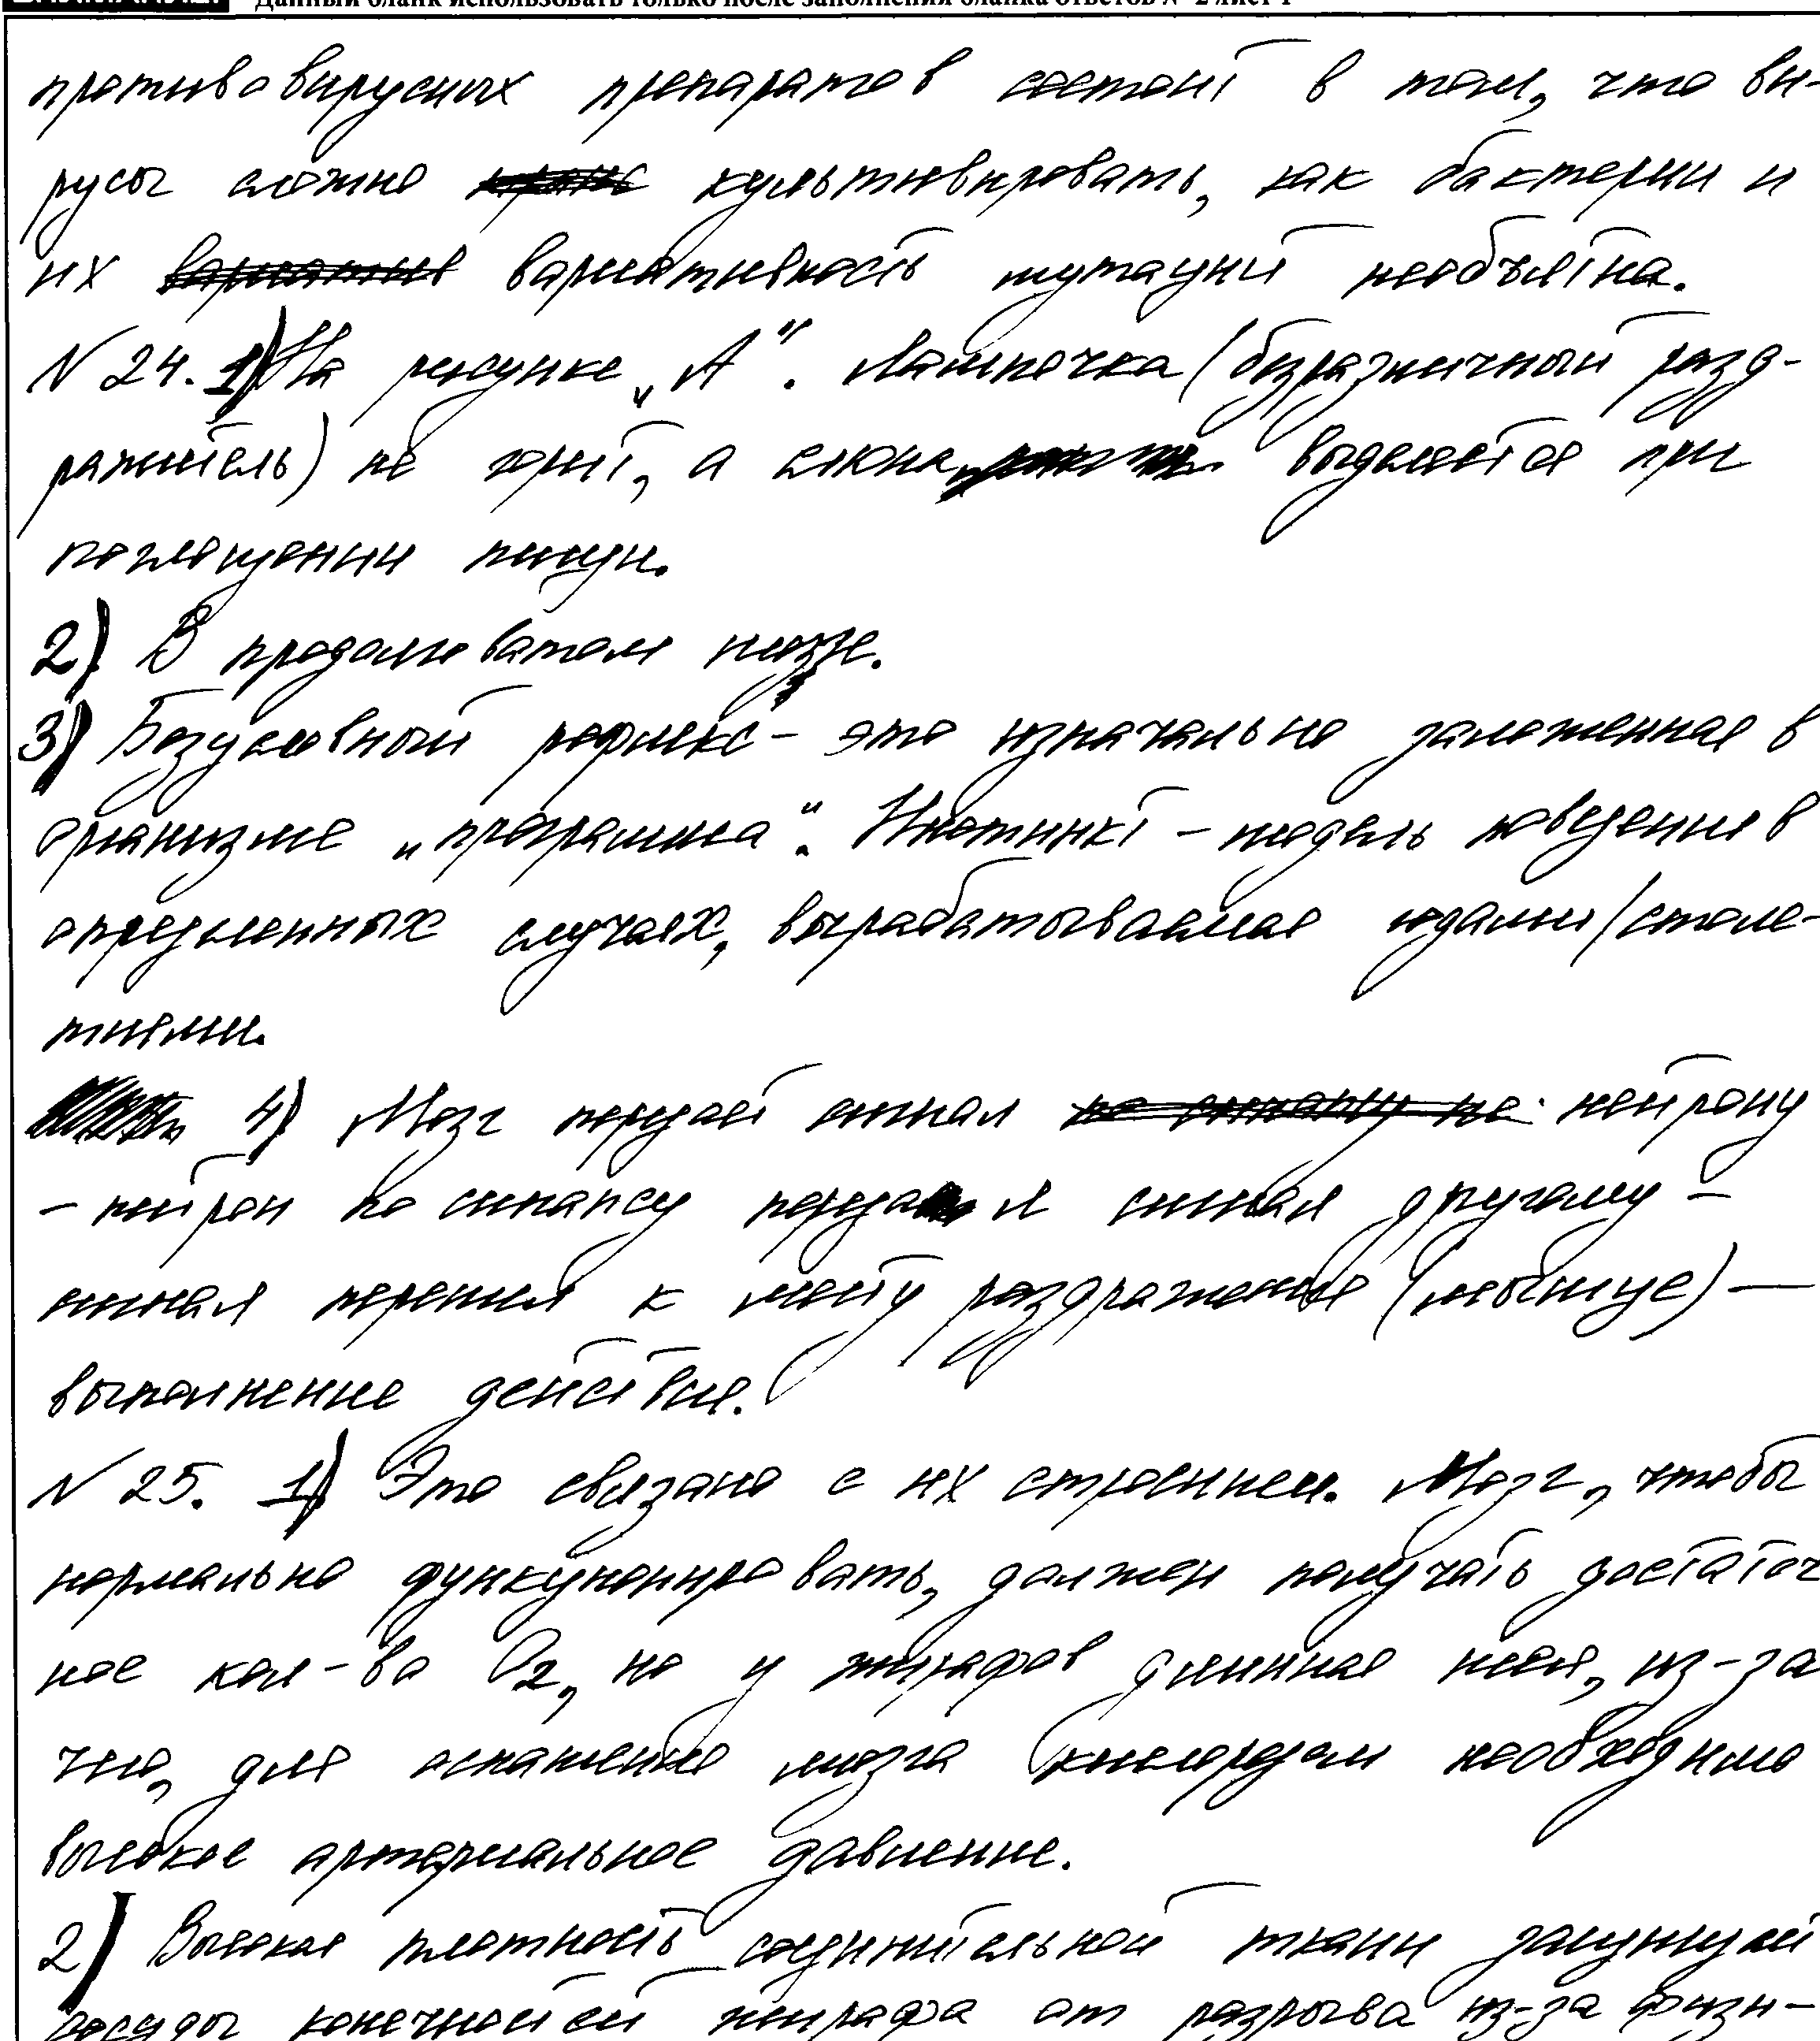 Данный бланк использовать только после заполнения бланка ответов № 2 лист 1
противовирусных препаратов состоит в том, что ви-
русы сложно культивировать, как бактерии и
их вариативность мутаций необъятна.
N 24. 1) На рисунке „А". Лампочка (безразличный разд-
ражитель) не горит, а слюна выделяется при
поглощении пищи.
2) В продолговатом мозге.
3) Безусловный рефлекс - это изначально заложенная в
организме „программа". Инстинкт - модель поведения в
определенных случаях, вырабатываемая годами/столе-
тиями.
4) Мозг передаёт сигнал нейрону
- нейрон по синапсу передал сигнал другому -
сигнал перешел к месту раздражения (мышце) —
выполнение действия.
N 25. 1) Это связано с их строением. Мозг, чтобы
нормально функционировать, должен получать достаточ
ное кол-во O2, но у жирафов длинная шея, из-за
чего, для оснащения мозга кислородом необходимо
высокое артериальное давление.
2) Высокая плотность соединительной ткани защищает
сосуды конечностей жирафа от разрыва из-за физи-